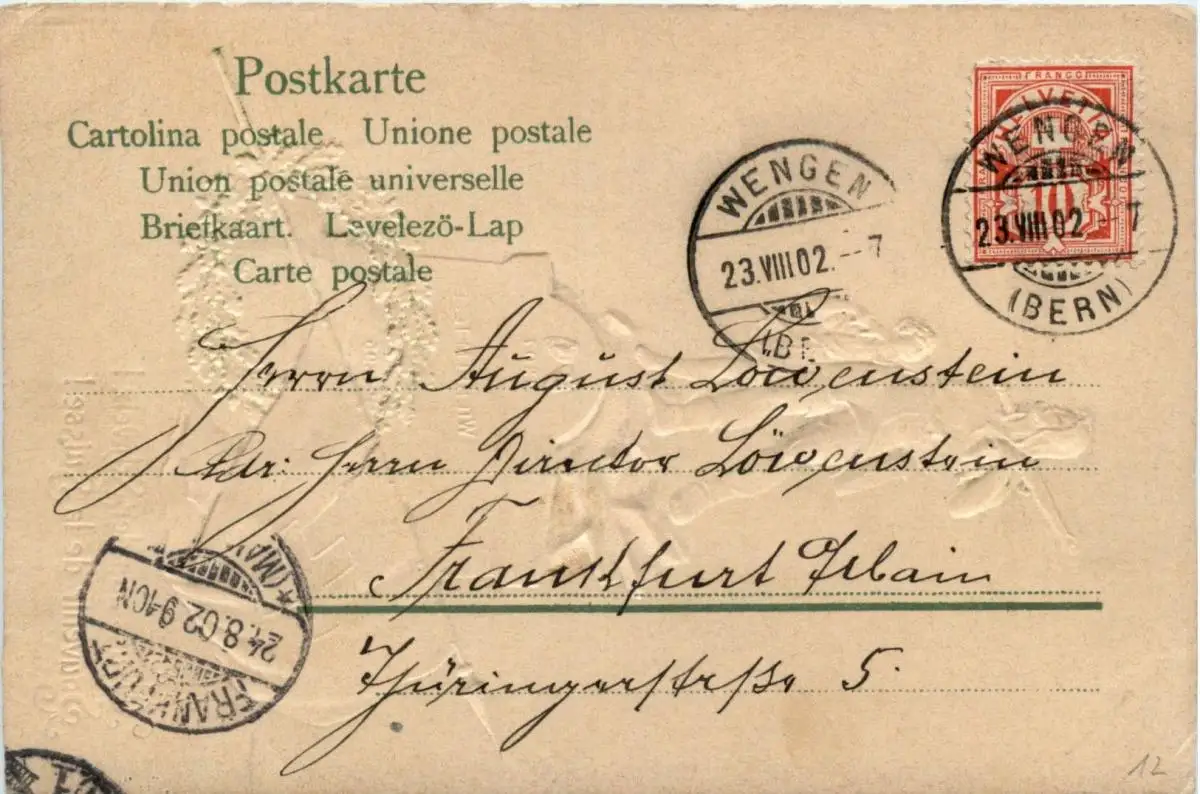 Postkarte
Cartolina postale Unione postale
Union postale universelle
Briefkaart. Levelezö-Lap
Carte postale
FRANCO
HELVETIA
10
WENGEN
23.VIII 02. - 7
(BERN)
WENGEN
23.VIII 02. - - 7
(BE
Herrn August Löwenstein
Adr: Herrn Director Löwenstein
Frankfurt a/Main
Thüringerstrße 5.
FRANKFURT
24.8.02.9-10N
*(MAI
12